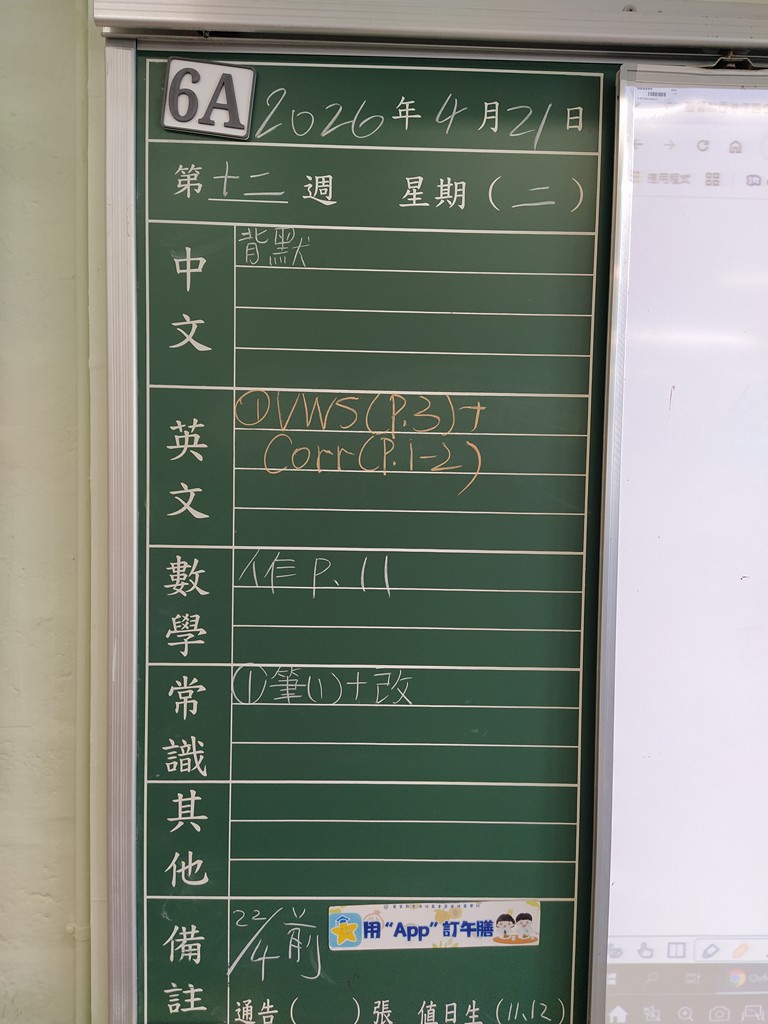 6A 2026年4月21日
第十二週 星期(二)
中文
背默
英文
①VWS(P.3)+
Corr(P.1-2)
數學
作P.11
常識
①筆(1)+改
其他
備註
22/4前
用"App"訂午膳
通告( )張 值日生(11,12)
應用程式